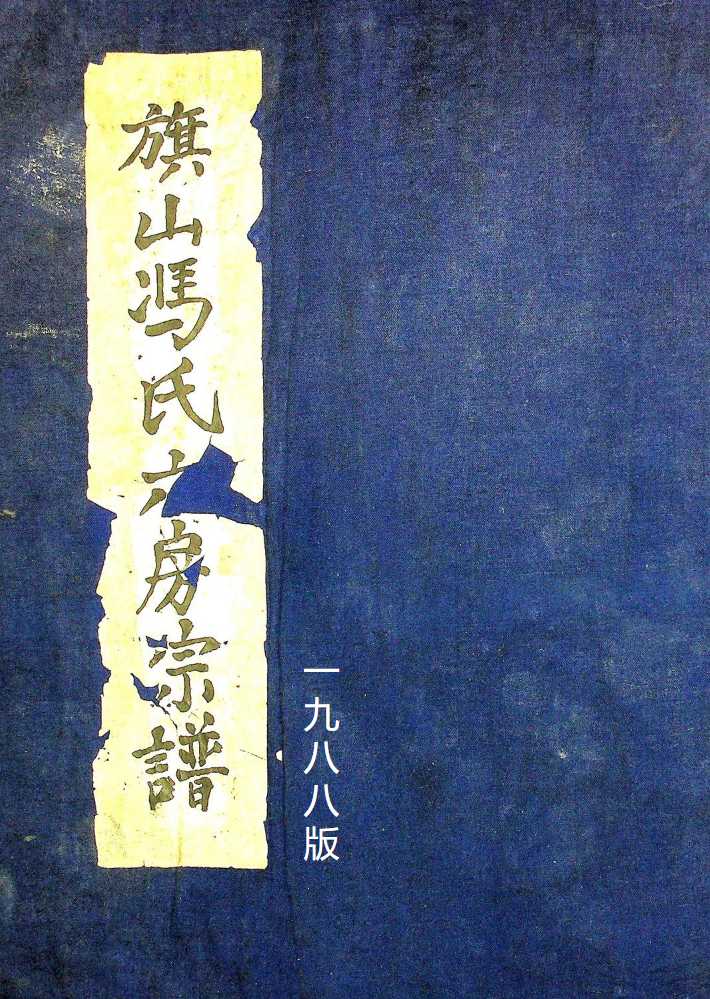 旗山馮氏六房宗譜
一九八八版